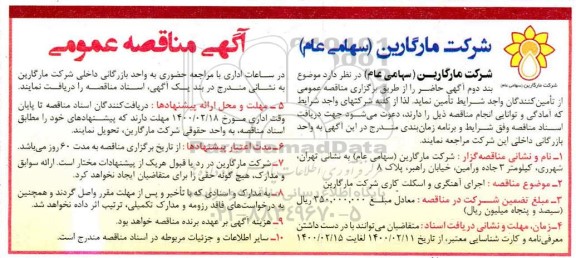 آگهی مناقصه عمومی
شرکت مارگارین (سهامی عام)
شرکت مارگارین (سهامی عام)
شرکت مارگارین (سهامی عام) در نظر دارد موضوع
بند دوم آگهی حاضر را از طریق برگزاری مناقصه عمومی
از تأمین‌کنندگان واجد شرایط تأمین نماید. لذا از کلیه شرکتهای واجد شرایط
که آمادگی و توانایی انجام مناقصه ذیل را دارند، دعوت می‌شود جهت دریافت
اسناد مناقصه وفق شرایط و برنامه زمان‌بندی مندرج در این آگهی به واحد
بازرگانی داخلی این شرکت مراجعه نمایند.
۱- نام و نشانی مناقصه‌گزار : شرکت مارگارین (سهامی عام) به نشانی تهران،
شهرری، کیلومتر ۳ جاده ورامین، خیابان راهبر، پلاک ۸
۲- موضوع مناقصه : اجرای آهنگری و اسکلت کاری شرکت مارگارین
۳- مبلغ تضمین شرکت در مناقصه : معادل مبلغ ۳۵۰,۰۰۰,۰۰۰ ریال
(سیصد و پنجاه میلیون ریال)
۴- زمان، مهلت و نشانی دریافت اسناد : متقاضیان می‌توانند با در دست داشتن
معرفی‌نامه و کارت شناسایی معتبر، از تاریخ ۱۴۰۰/۰۲/۱۱ لغایت ۱۴۰۰/۰۲/۱۵
در ساعات اداری با مراجعه حضوری به واحد بازرگانی داخلی شرکت مارگارین
به نشانی مندرج در بند یک آگهی، اسناد مناقصه را دریافت نمایند.
۵ - مهلت و محل ارائه پیشنهادها : دریافت‌کنندگان اسناد مناقصه تا پایان
وقت اداری مورخ ۱۴۰۰/۰۲/۱۸ مهلت دارند که پیشنهادهای خود را مطابق
اسناد مناقصه، به واحد حقوقی شرکت مارگارین، تحویل نمایند.
۶- مدت اعتبار پیشنهادها : از تاریخ برگزاری مناقصه به مدت ۶۰ روز می‌باشد.
۷- شرکت مارگارین در رد یا قبول هریک از پیشنهادات مختار است. ارائه سوابق
و مدارک، هیچ گونه حقی را برای متقاضیان ایجاد نخواهد کرد.
۸- به مدارک و اسنادی که با تأخیر و پس از مهلت مقرر واصل گردند و همچنین
به درخواست‌های فاقد رزومه و مدارک تکمیلی، ترتیب اثر داده نخواهد شد.
۹- هزینه آگهی بر عهده برنده مناقصه خواهد بود.
۱۰- سایر اطلاعات و جزئیات مربوطه در اسناد مناقصه مندرج است.